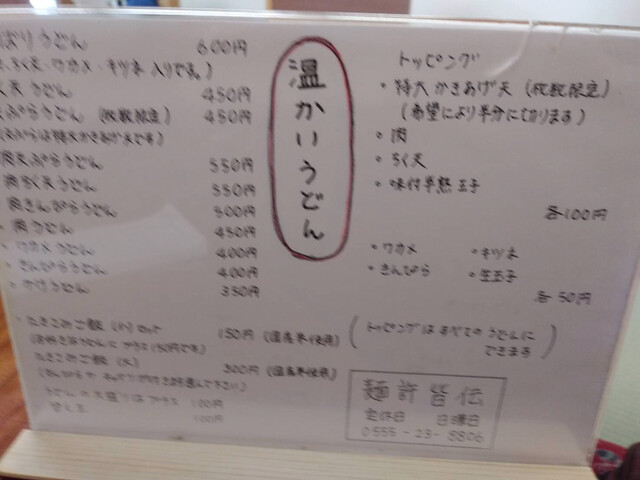 ぱりうどん 600円
ちく天・ワカメ・キツネ入りです)
天うどん 450円
ぷらうどん (枚数限定) 450円
(天ぷらは特大かきあげ天です)
肉天ぷらうどん 550円
肉ちく天うどん 550円
肉きんぴらうどん 500円
・肉うどん 450円
・ワカメうどん 400円
・きんぴらうどん 400円
・かけうどん 350円
・たきこみご飯 (小) 150円 (国産米使用)
たきこみご飯 (大) 300円 (国産米使用)
うどんの大盛りはプラス 100円
100円
温かいうどん
トッピング
・特大かきあげ天 (枚数限定)
(希望により半分になります)
・肉
・ちく天
・味付半熟玉子
各100円
・ワカメ ・キツネ
・きんぴら ・生玉子
各50円
(トッピングはすべてのうどんに
できます)
麺許皆伝
定休日 日曜日
0555-23-8806